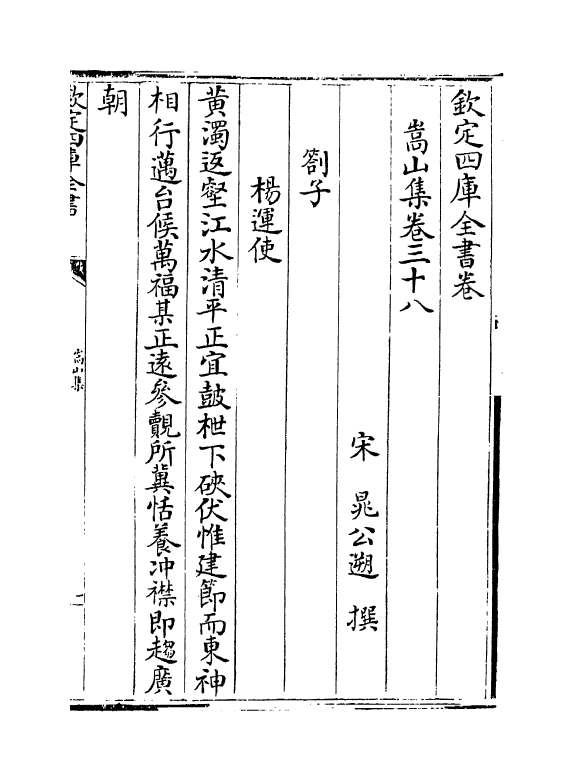 欽定四庫全書卷
嵩山集卷三十八
宋 晁公遡 撰
劄子
楊運使
黄濁返壑江水清平正宜鼓枻下硤伏惟建節而東神
相行邁台候萬福某正逺參覿所冀恬養冲襟即趨廣
朝
欽定四庫全書
嵩山集